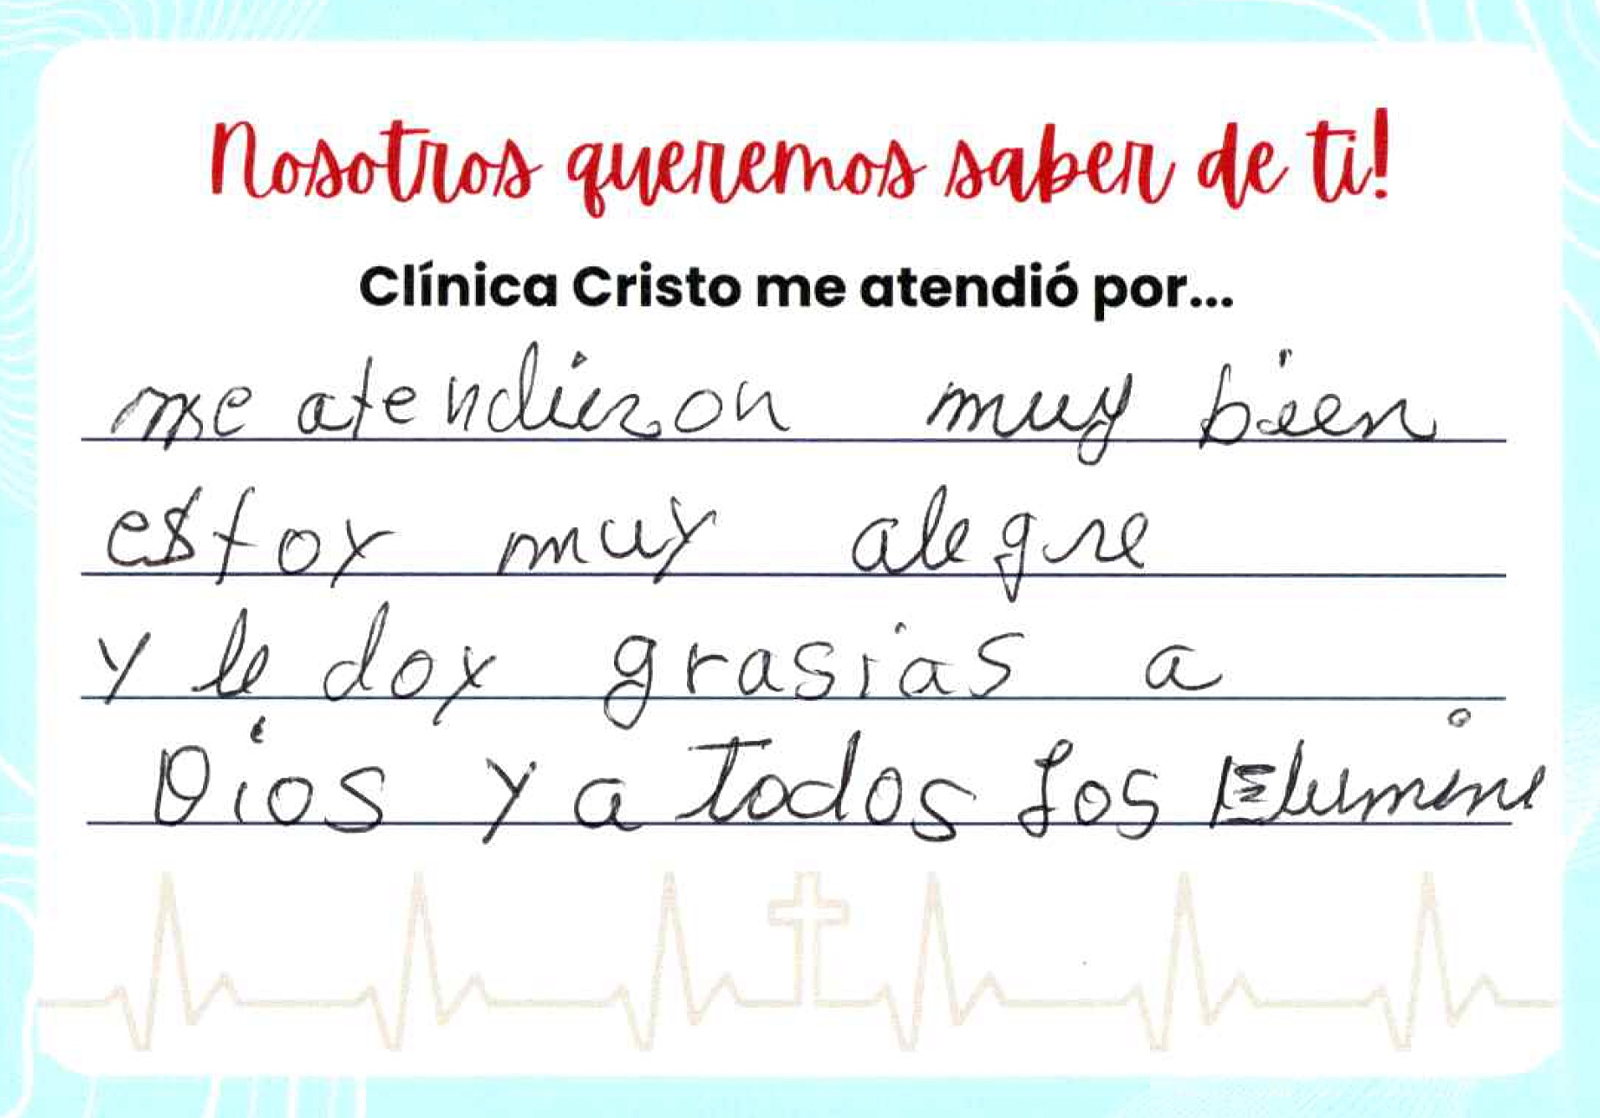 Nosotros queremos saber de ti!
Clínica Cristo me atendió por...
me atendieron muy bien
estoy muy alegre
y le doy grasias a
Dios y a todos los Elumine